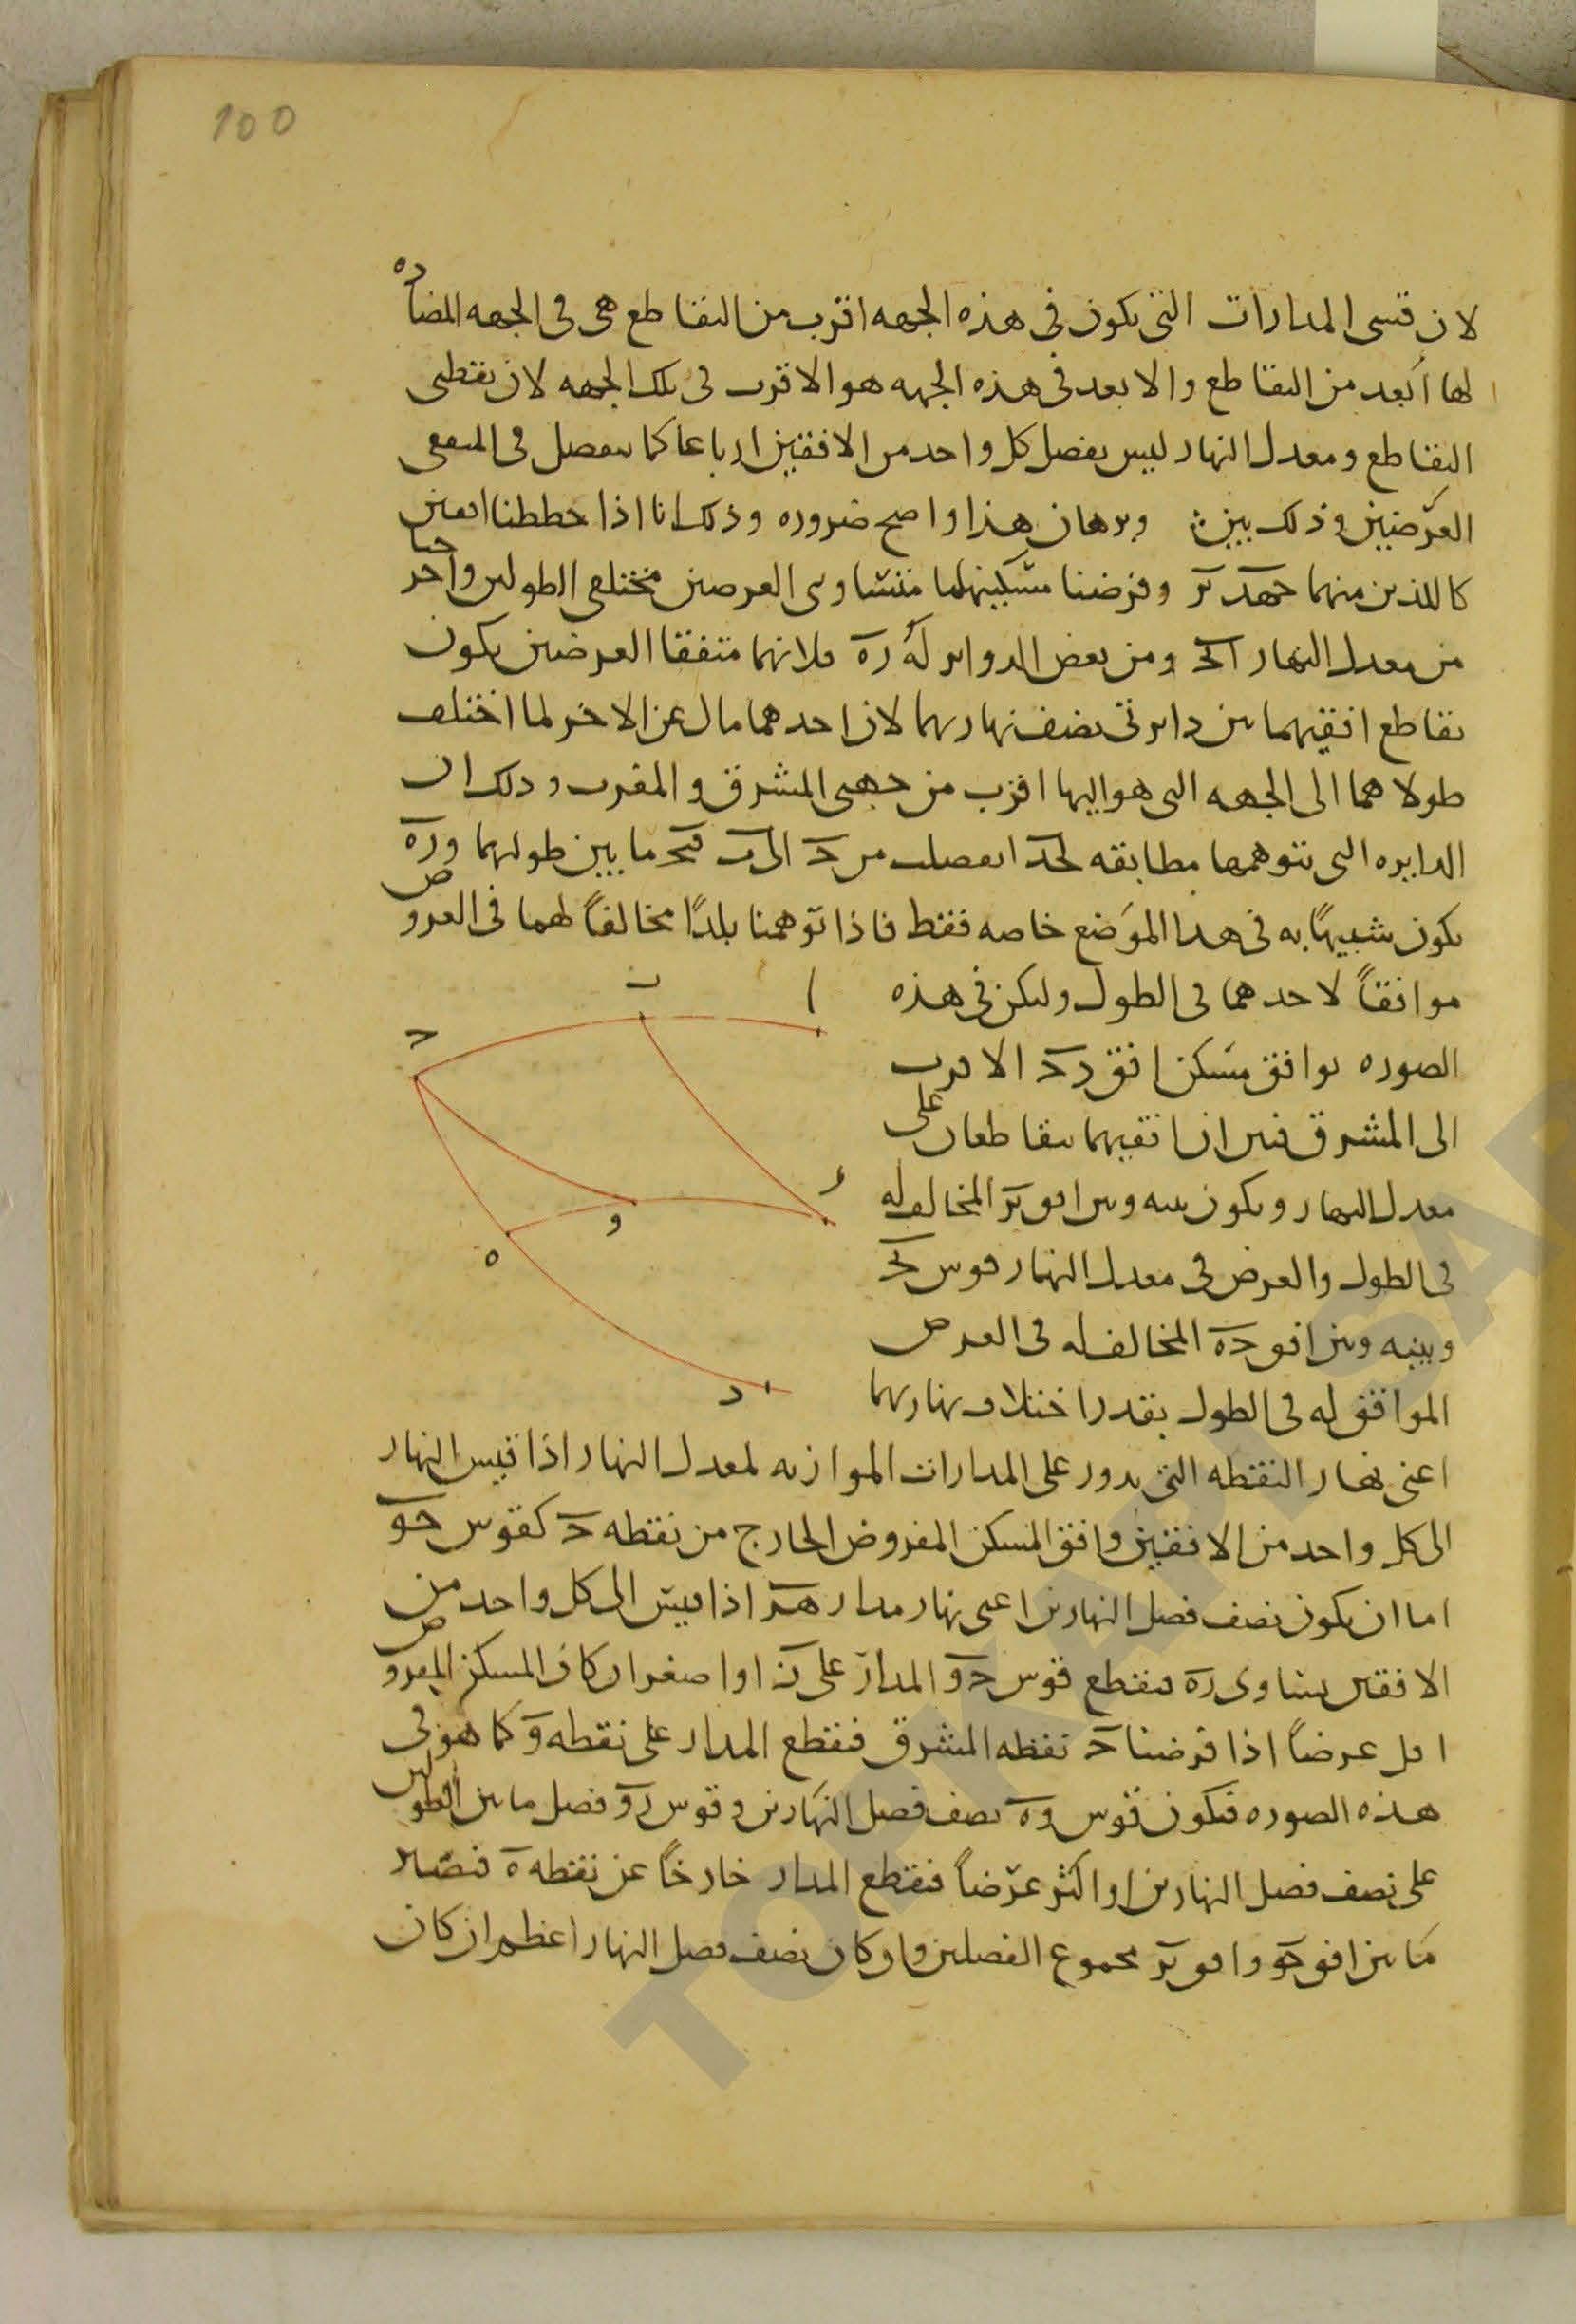 100
لان قسى المدارات التى يكون فى هذه الجهه اقرب من التقاطع هى فى الجهه المضاده
لها ابعد من التقاطع والابعد فى هذه الجهه هو الاقرب فى تلك الجهه لان نقطتى
التقاطع ومعدل النهار ليس يفصل كل واحد من الافقين ارباعا كما تنفصل فى المتفقى
العرضين وذلك بين وبرهان هذا واضح ضروره وذلك انا اذا خططنا افقين
كاللذين منهما حهد بر وفرضنا مسكنيهما متساوى العرضين مختلفى الطولين واخرجنا
من معدل النهار ابح ومن بعض الدواير له ره فلانهما متفقا العرضين يكون
تقاطع افقيهما بين دايرتى نصف نهاريهما لان احدهما مال عن الاخر لما اختلف
طولاهما الى الجهه التى هو اليها اقرب من جهتى المشرق والمغرب وذلك ان
الدايره التى نتوهمها مطابقه لحد انفصلت من ح الى ب فبح ما بين طوليهما وره
يكون شبيهًا به فى هذا الموضع خاصه فقط فاذا توهمنا بلدًا مخالفًا لهما فى العروض
موافقًا لاحدهما فى الطول وليكن فى هذه
الصوره يوافق مسكن افق دح الاقرب
الى المشرق فبين ان افقيهما يتقاطعان على
معدل النهار ويكون بينه وبين افق بر المخالف له
فى الطول والعرض فى معدل النهار قوس بح
وبينه وبين افق حه المخالف له فى العرض
الموافق له فى الطول بقدر اختلاف نهاريهما
اعنى نهار النقطه التى يدور على المدارات الموازيه لمعدل النهار اذا قيس النهار
الى كل واحد من الافقين وافق المسكن المفروض الخارج من نقطه ح كقوس حو
اما ان يكون نصف فضل النهارين اعنى نهار مدار هر اذا قيس الى كل واحد من
الافقين يساوى ره فيقطع قوس حو المدار على ر او اصغر ان كان المسكن المفروض
اقل عرضًا اذا فرضنا ح نقطه المشرق فيقطع المدار على نقطه و كما هو فى
هذه الصوره فيكون قوس وه نصف فضل النهارين وقوس رو فضل ما بين الطولين
على نصف فضل النهارين او اكثر عرضًا فيقطع المدار خارجًا عن نقطه ه فيصير
ما بين افق حو وافق بر مجموع الفضلين وان كان نصف فضل النهار اعظم ان كان
ا
ب
ح
ر
و
ه
د
TOPKAPI SA